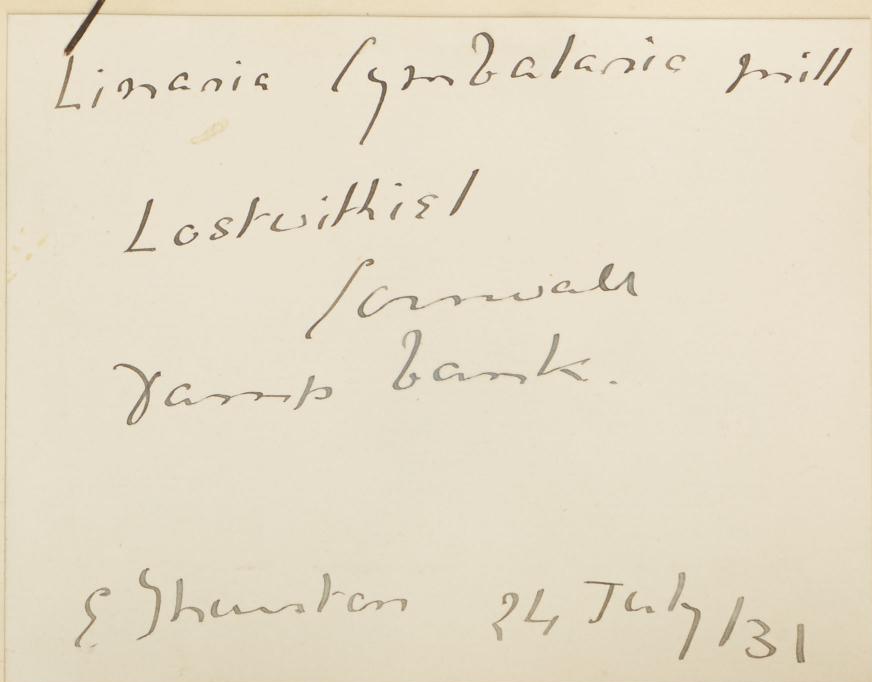 Linaria Cymbalaria Mill
Lostwithiel
Cornwall
Damp bank.
E Thurston 24 July/31